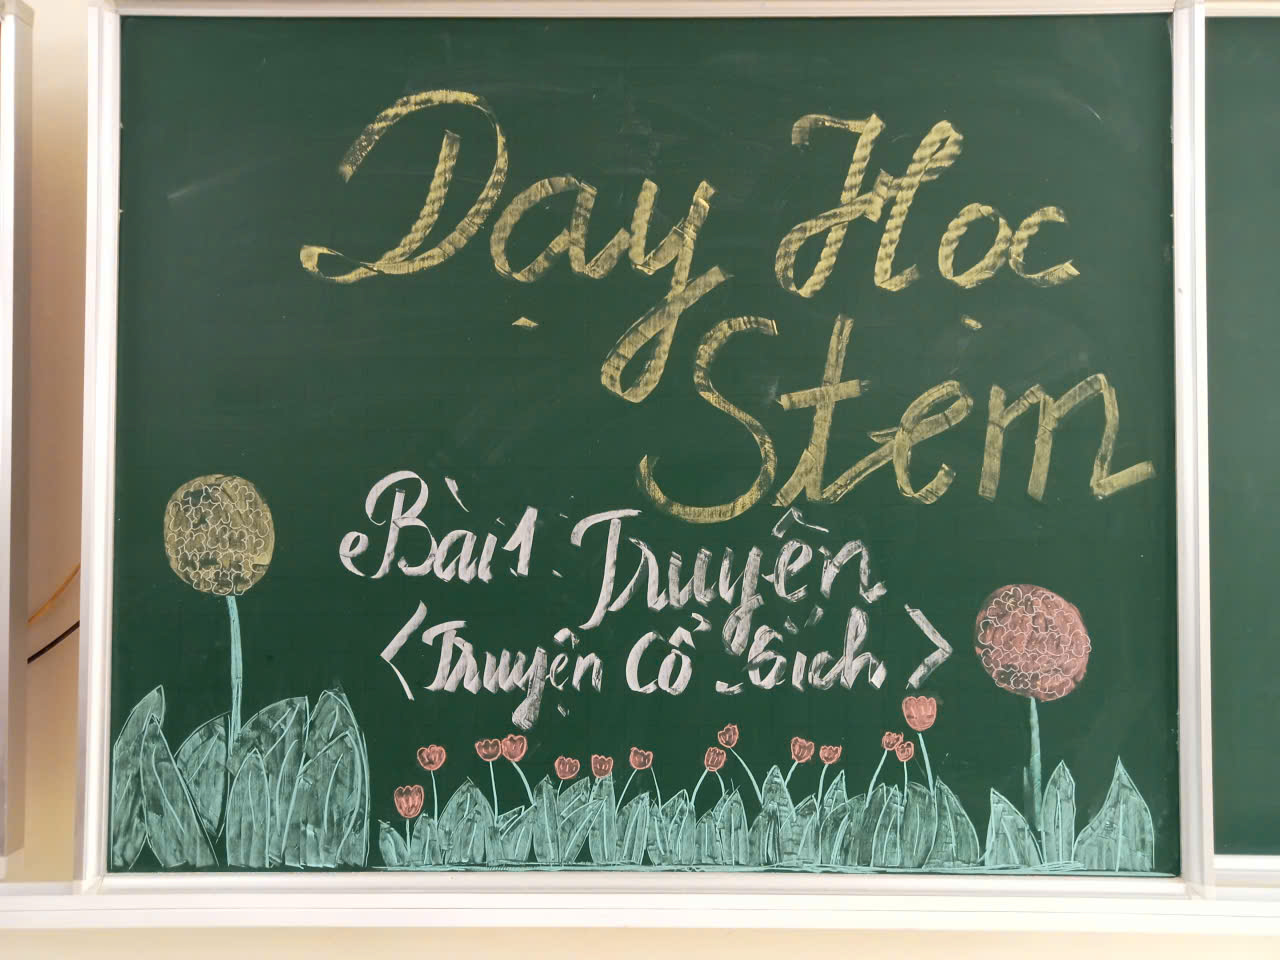 Dạy Học
Stem
Bài 1. Truyện
<Truyện Cổ Tích>